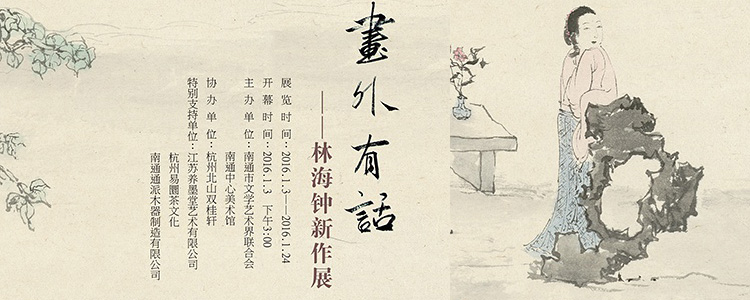 畫外有話
——林海钟新作展
展览时间：2016.1.3——2016.1.24
开幕时间：2016.1.3 下午3:00
主办单位：南通市文学艺术界联合会
南通中心美术馆
协办单位：杭州北山双桂轩
特别支持单位：江苏养墨堂艺术有限公司
杭州易圜茶文化
南通通派木器制造有限公司